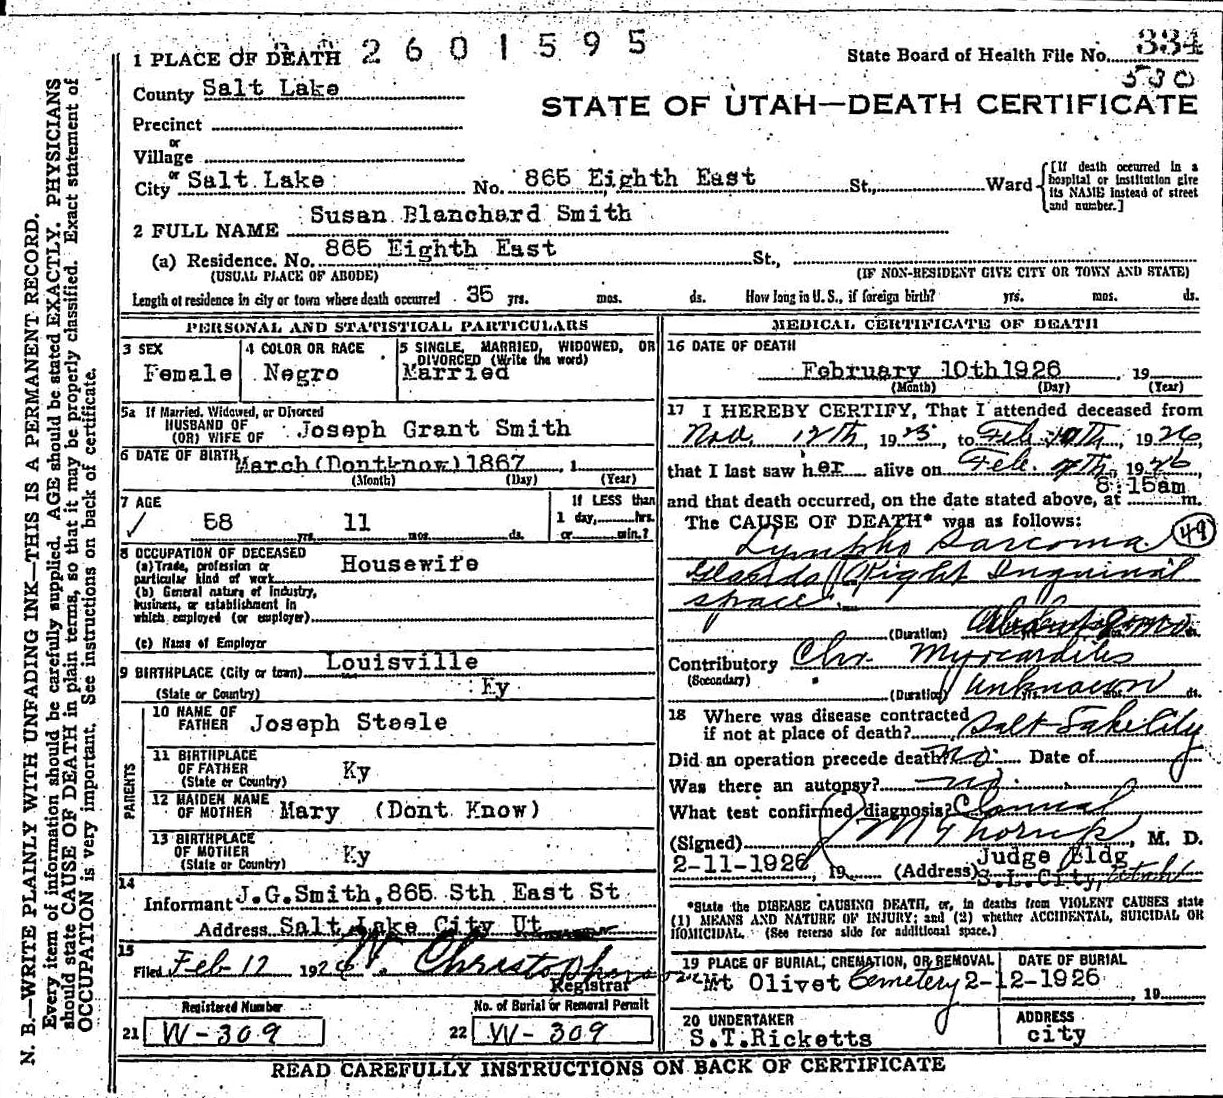 2601595
1 PLACE OF DEATH
State Board of Health File No. 334
530
County Salt Lake
STATE OF UTAH—DEATH CERTIFICATE
Precinct
or
Village
or
City Salt Lake No. 865 Eighth East St., Ward
[If death occurred in a hospital or institution give its NAME instead of street and number.]
Susan Blanchard Smith
2 FULL NAME
865 Eighth East
(a) Residence. No. St.,
(USUAL PLACE OF ABODE) (IF NON-RESIDENT GIVE CITY OR TOWN AND STATE)
Length of residence in city or town where death occurred 35 yrs. mos. ds. How long in U. S., if foreign birth? yrs. mos. ds.
PERSONAL AND STATISTICAL PARTICULARS
3 SEX
Female
4 COLOR OR RACE
Negro
5 SINGLE, MARRIED, WIDOWED, OR
DIVORCED (Write the word)
Married
5a If Married, Widowed, or Divorced
HUSBAND OF
(OR) WIFE OF Joseph Grant Smith
6 DATE OF BIRTH March (Dontknow) 1867, 1
(Month) (Day) (Year)
7 AGE
58 yrs. 11 mos. ds.
If LESS than
1 day, hrs.
or min.?
8 OCCUPATION OF DECEASED
(a) Trade, profession or
particular kind of work Housewife
(b) General nature of Industry,
business, or establishment in
which employed (or employer)
(c) Name of Employer
9 BIRTHPLACE (City or town) Louisville
(State or Country) Ky
PARENTS
10 NAME OF
FATHER Joseph Steele
11 BIRTHPLACE
OF FATHER
(State or Country) Ky
12 MAIDEN NAME
OF MOTHER Mary (Dont Know)
13 BIRTHPLACE
OF MOTHER
(State or Country) Ky
14
Informant J.G.Smith, 865 8th East St
Address Salt Lake City Ut
15
Filed Feb 12 1926
Registrar
Registered Number
21 W-309
No. of Burial or Removal Permit
22 W-309
MEDICAL CERTIFICATE OF DEATH
16 DATE OF DEATH
February 10th 1926, 19
(Month) (Day) (Year)
17 I HEREBY CERTIFY, That I attended deceased from
Nov. 12th, 1925, to Feb. 10th, 1926
that I last saw her alive on Feb. 9th, 1926
8:15am
and that death occurred, on the date stated above, at m.
The CAUSE OF DEATH* was as follows:
49
Lympho Sarcoma
Glands Right Inguinal
space.
(Duration)
Contributory Chr. Myocarditis
(Secondary)
(Duration) Unknown yrs. mos. ds.
18 Where was disease contracted
if not at place of death? Salt Lake City
Did an operation precede death? no. Date of
Was there an autopsy? no.
What test confirmed diagnosis? Clinical
(Signed) M Thorup, M. D.
2-11-1926, 19 (Address) Judge Bldg
S.L.City, Utah
*State the DISEASE CAUSING DEATH, or, in deaths from VIOLENT CAUSES state
(1) MEANS AND NATURE OF INJURY; and (2) whether ACCIDENTAL, SUICIDAL OR
HOMICIDAL. (See reverse side for additional space.)
19 PLACE OF BURIAL, CREMATION, OR REMOVAL
Mt Olivet Cemetery
DATE OF BURIAL
2-12-1926, 19
20 UNDERTAKER
S.T.Ricketts
ADDRESS
city
READ CAREFULLY INSTRUCTIONS ON BACK OF CERTIFICATE
N. B.—WRITE PLAINLY WITH UNFADING INK—THIS IS A PERMANENT RECORD.
Every item of information should be carefully supplied. AGE should be stated EXACTLY. PHYSICIANS
should state CAUSE OF DEATH in plain terms, so that it may be properly classified. Exact statement of
OCCUPATION is very important. See instructions on back of certificate.